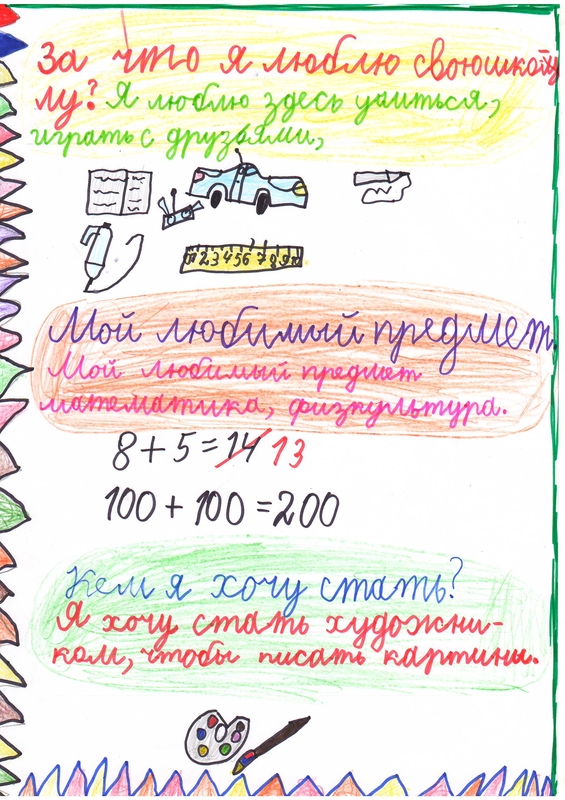 За что я люблю своюшко
лу? Я люблю здесь учиться,
играть с друзьями,
12345678910
Мой любимый предмет.
Мой любимый предмет
математика, физкультура.
8+5=14 13
100+100=200
Кем я хочу стать?
Я хочу стать художни-
ком, чтобы писать картины.